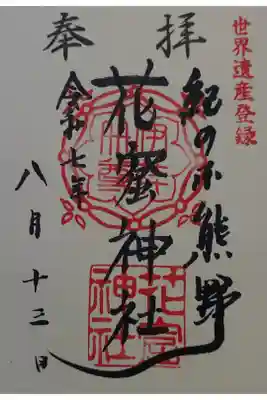 世界遺産登録
奉拝
紀の国熊野
花窟神社
令和七年
八月十三日
花窟
神社